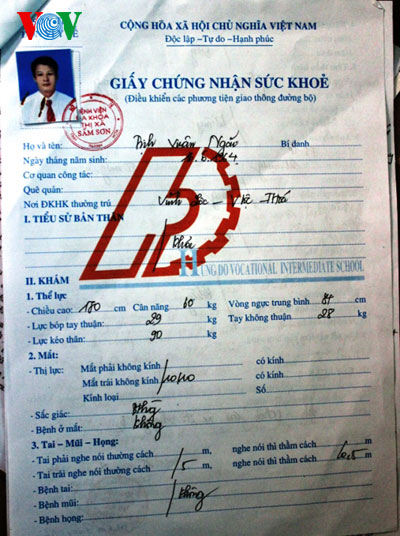 VOV
CỘNG HÒA XÃ HỘI CHỦ NGHĨA VIỆT NAM
Độc lập - Tự do - Hạnh phúc
GIẤY CHỨNG NHẬN SỨC KHOẺ
(Điều khiển các phương tiện giao thông đường bộ)
BỆNH VIỆN
ĐA KHOA
THỊ XÃ
SẦM SƠN
Họ và tên: Xuân Bí danh
Ngày tháng năm sinh:
Cơ quan công tác:
Quê quán:
Nơi ĐKHK thường trú
I. TIỂU SỬ BẢN THÂN
khỏe
HUNG DO VOCATIONAL INTERMEDIATE SCHOOL
II. KHÁM
1. Thể lực
- Chiều cao: 180 cm Cân nặng 60 kg Vòng ngực trung bình 84 cm
- Lực bóp tay thuận: 29 kg Tay không thuận: 28 kg
- Lực kéo thân: 90 kg
2. Mắt:
- Thị lực: Mắt phải không kính có kính
Mắt trái không kính 10/10 có kính
Kính loại Số
- Sắc giác:
- Bệnh ở mắt: không
3. Tai – Mũi – Họng:
- Tai phải nghe nói thường cách m, nghe nói thì thầm cách m
- Tai trái nghe nói thường cách 5 m, nghe nói thì thầm cách 0.5 m
- Bệnh tai:
- Bệnh mũi: không
- Bệnh họng: